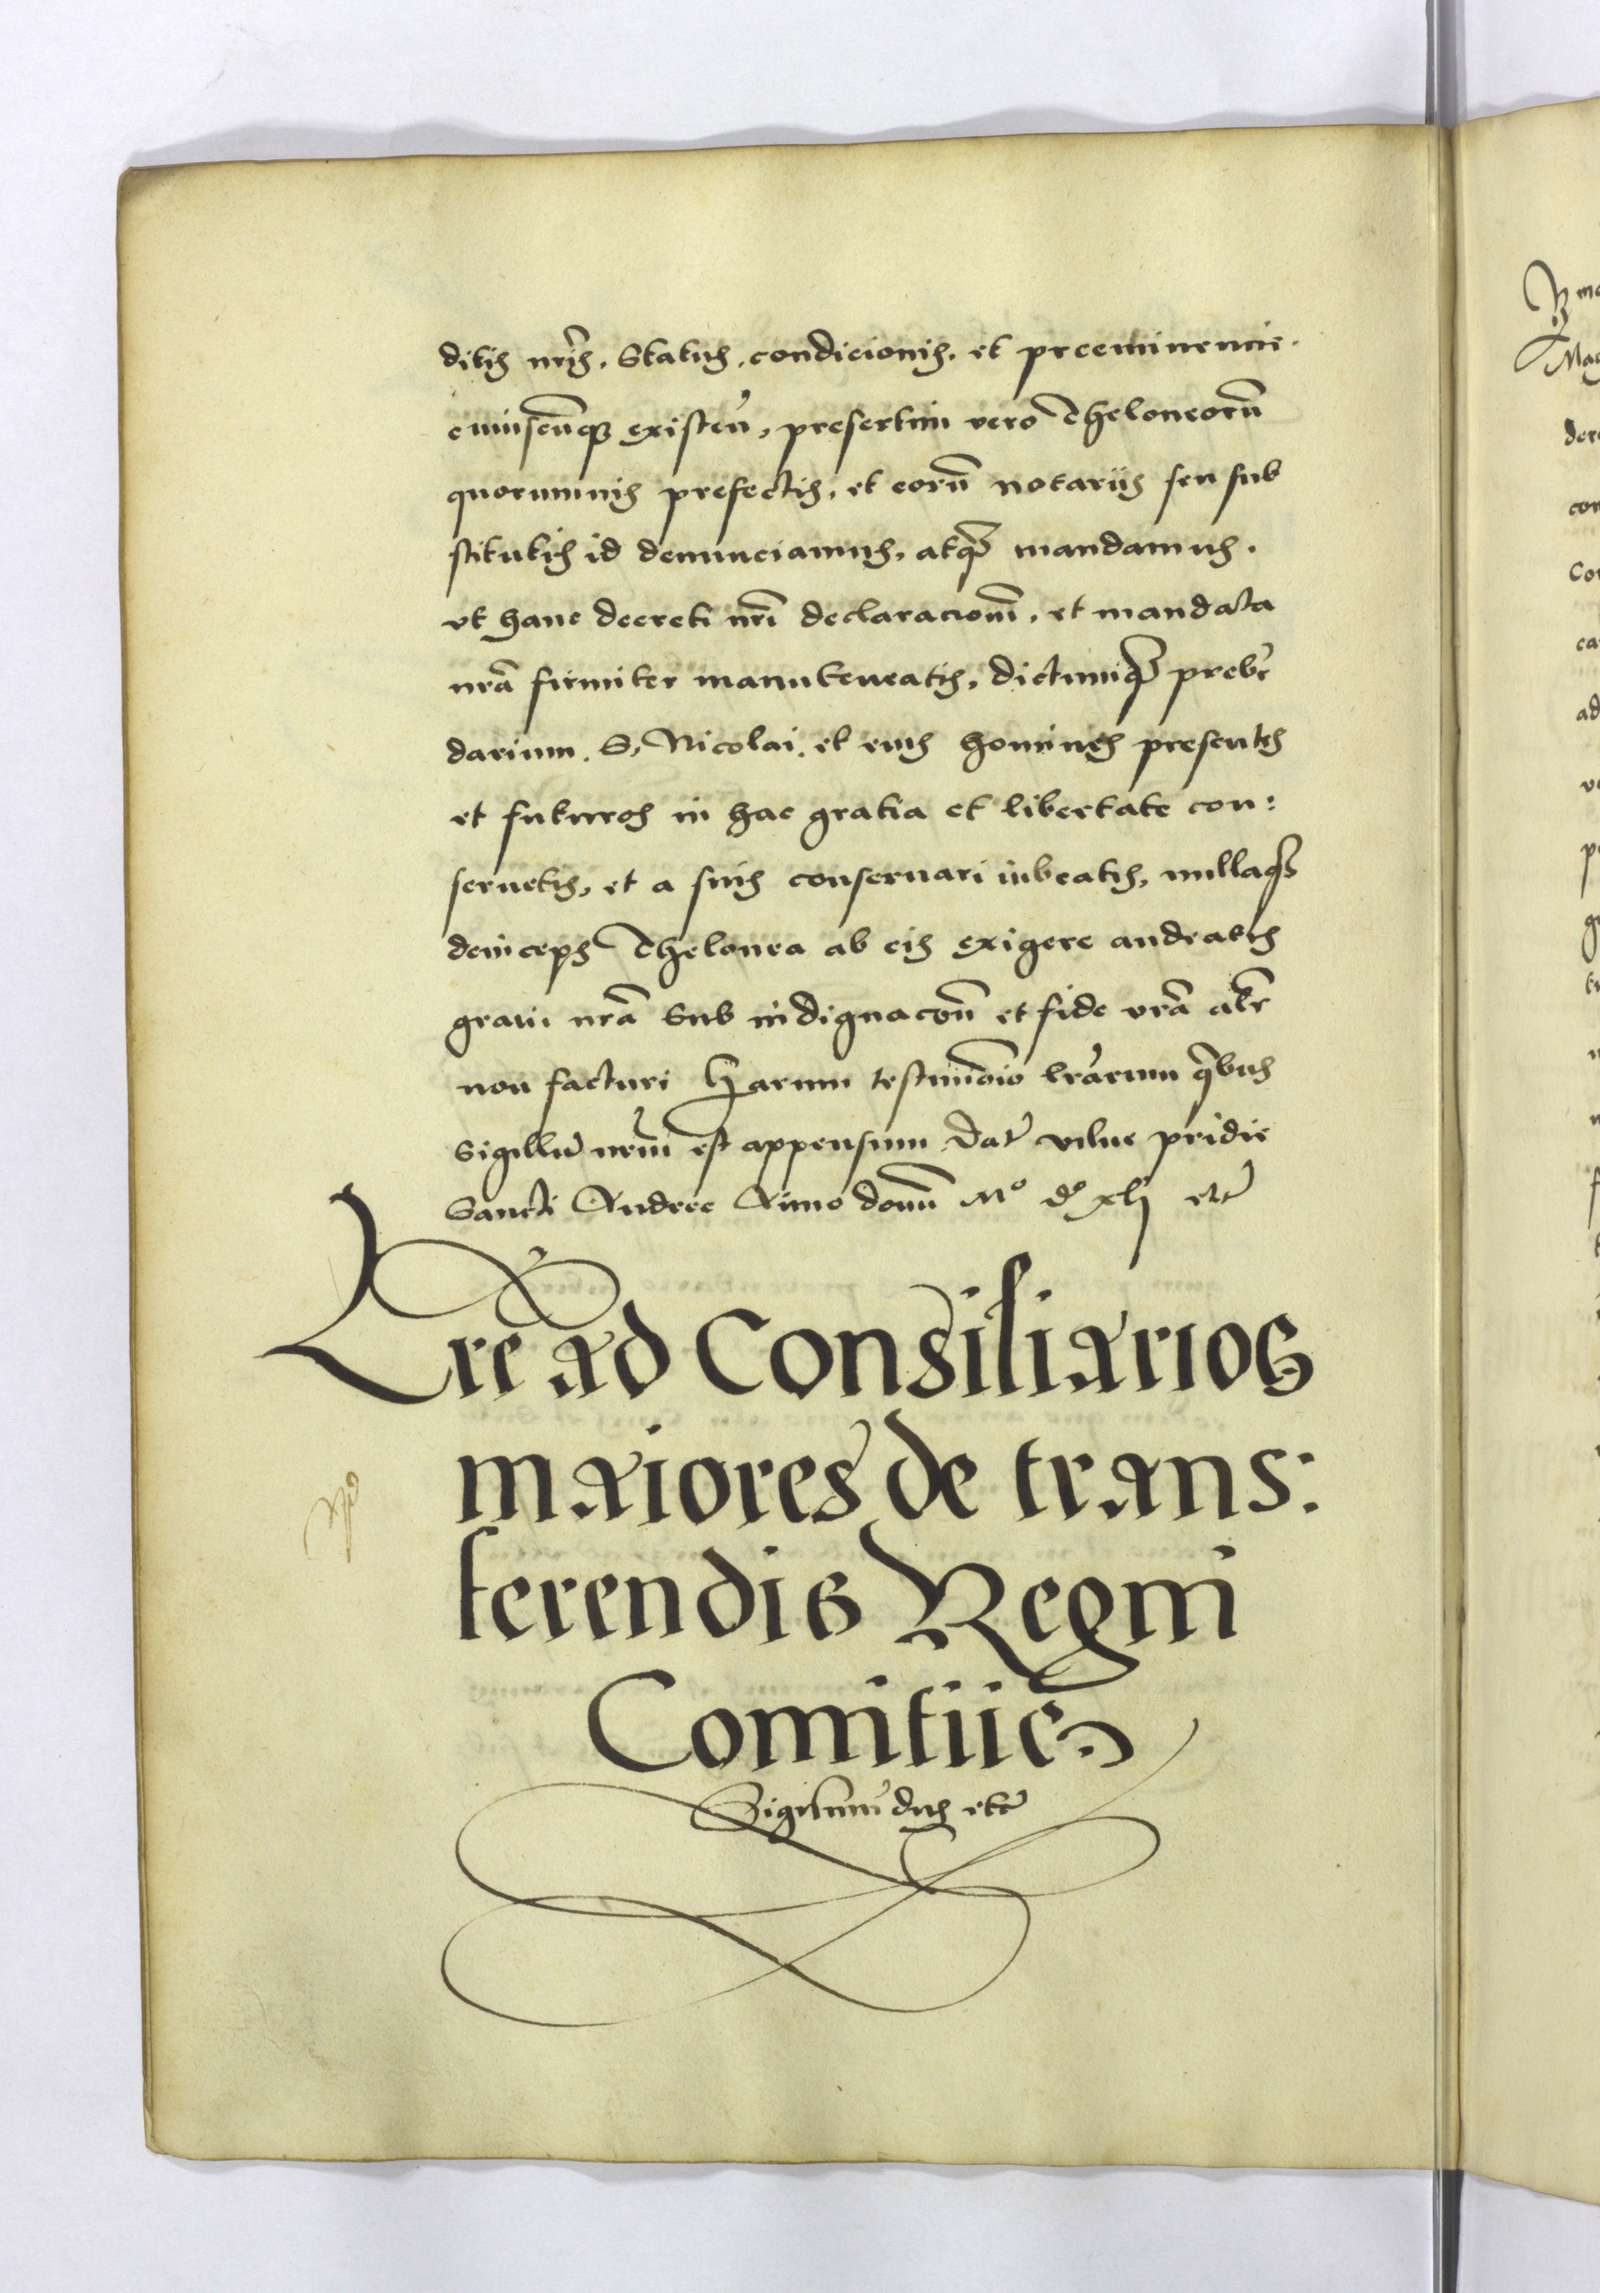 ditis nr̃is, status, condicionis, et preeminencie
cuiuscũqꝫ existeñ, presertim vero Theloneorũ
quorumuis prefectis, et eorũ notariis seu sub
stitutis id denunciamus, atqꝫ mandamus.
vt hanc decreti nr̃i declaracionẽ, et mandata
nr̃a firmiter manuteneatis, dictumqꝫ preben̄
darium. S. Nicolai. et eius homines presentes
et futuros in hac gratia et libertate con:
seruetis, et a suis conseruari iubeatis, nullaqꝫ
deinceps Thelonea ab eis exigere audeatis
graui nr̃a sub indignacoñ et fide vr̃a altr̃
non facturi Harum testimõio lr̃arum q̃bus
Sigillũ nrm̃ est appensum Dat̃ vilne pridie
Sancti Andree Anno domĩ Mº dº xlj etc̃
Lre ad Consiliarios
maiores de trans:
ferendis Regni
Comitiis
Sigismũ dus etc̃